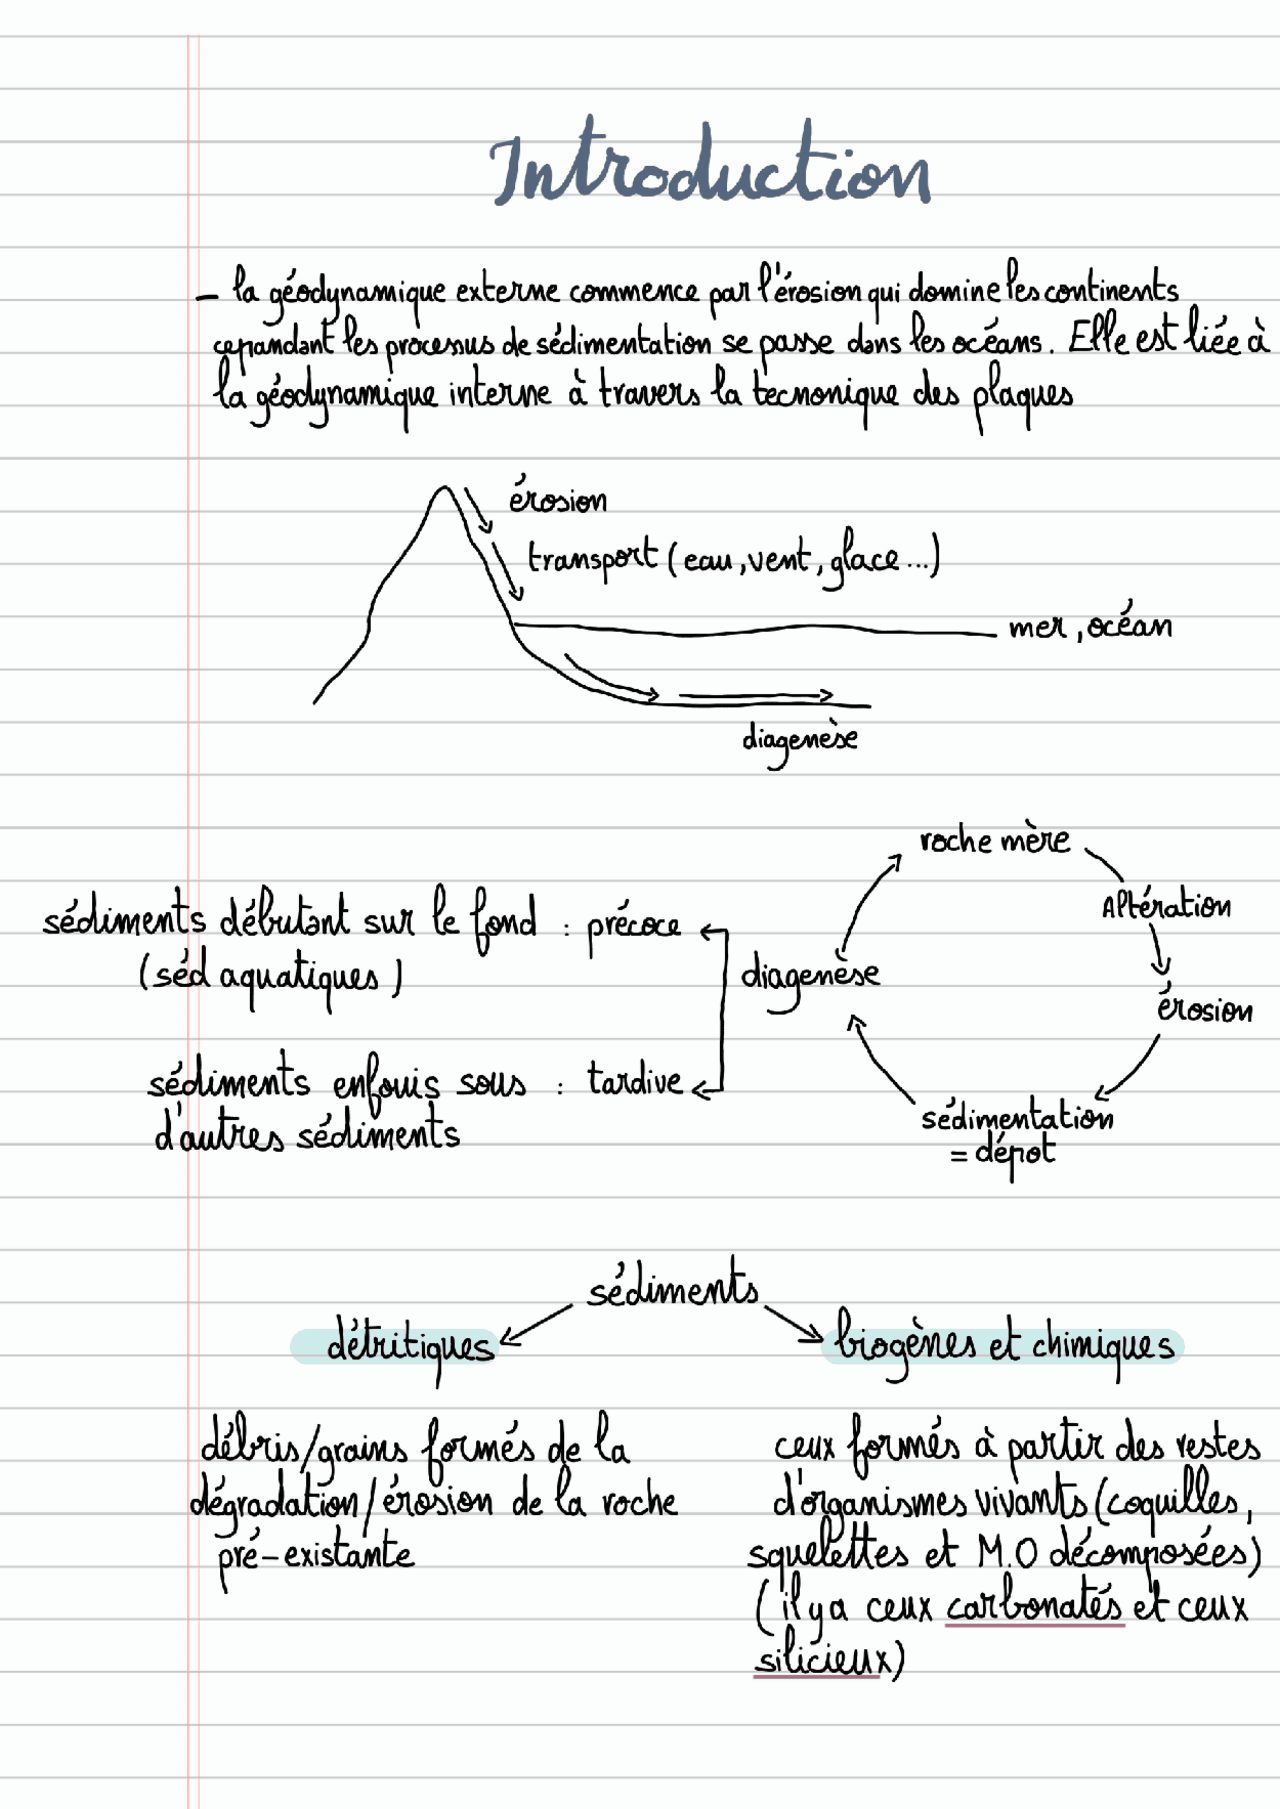 Introduction
- la géodynamique externe commence par l'érosion qui domine les continents
cependant les processus de sédimentation se passe dans les océans. Elle est liée à
la géodynamique interne à travers la tecnonique des plaques
érosion
transport (eau, vent, glace...)
mer, océan
diagenèse
roche mère
Altération
érosion
sédimentation
= dépot
diagenèse
sédiments débutant sur le fond : précoce
(séd aquatiques)
sédiments enfouis sous : tardive
d'autres sédiments
sédiments
détritiques
biogènes et chimiques
débris/grains formés de la
dégradation/érosion de la roche
pré-existante
ceux formés à partir des restes
d'organismes vivants (coquilles,
squelettes et M.O décomposées)
(il y a ceux carbonatés et ceux
silicieux)